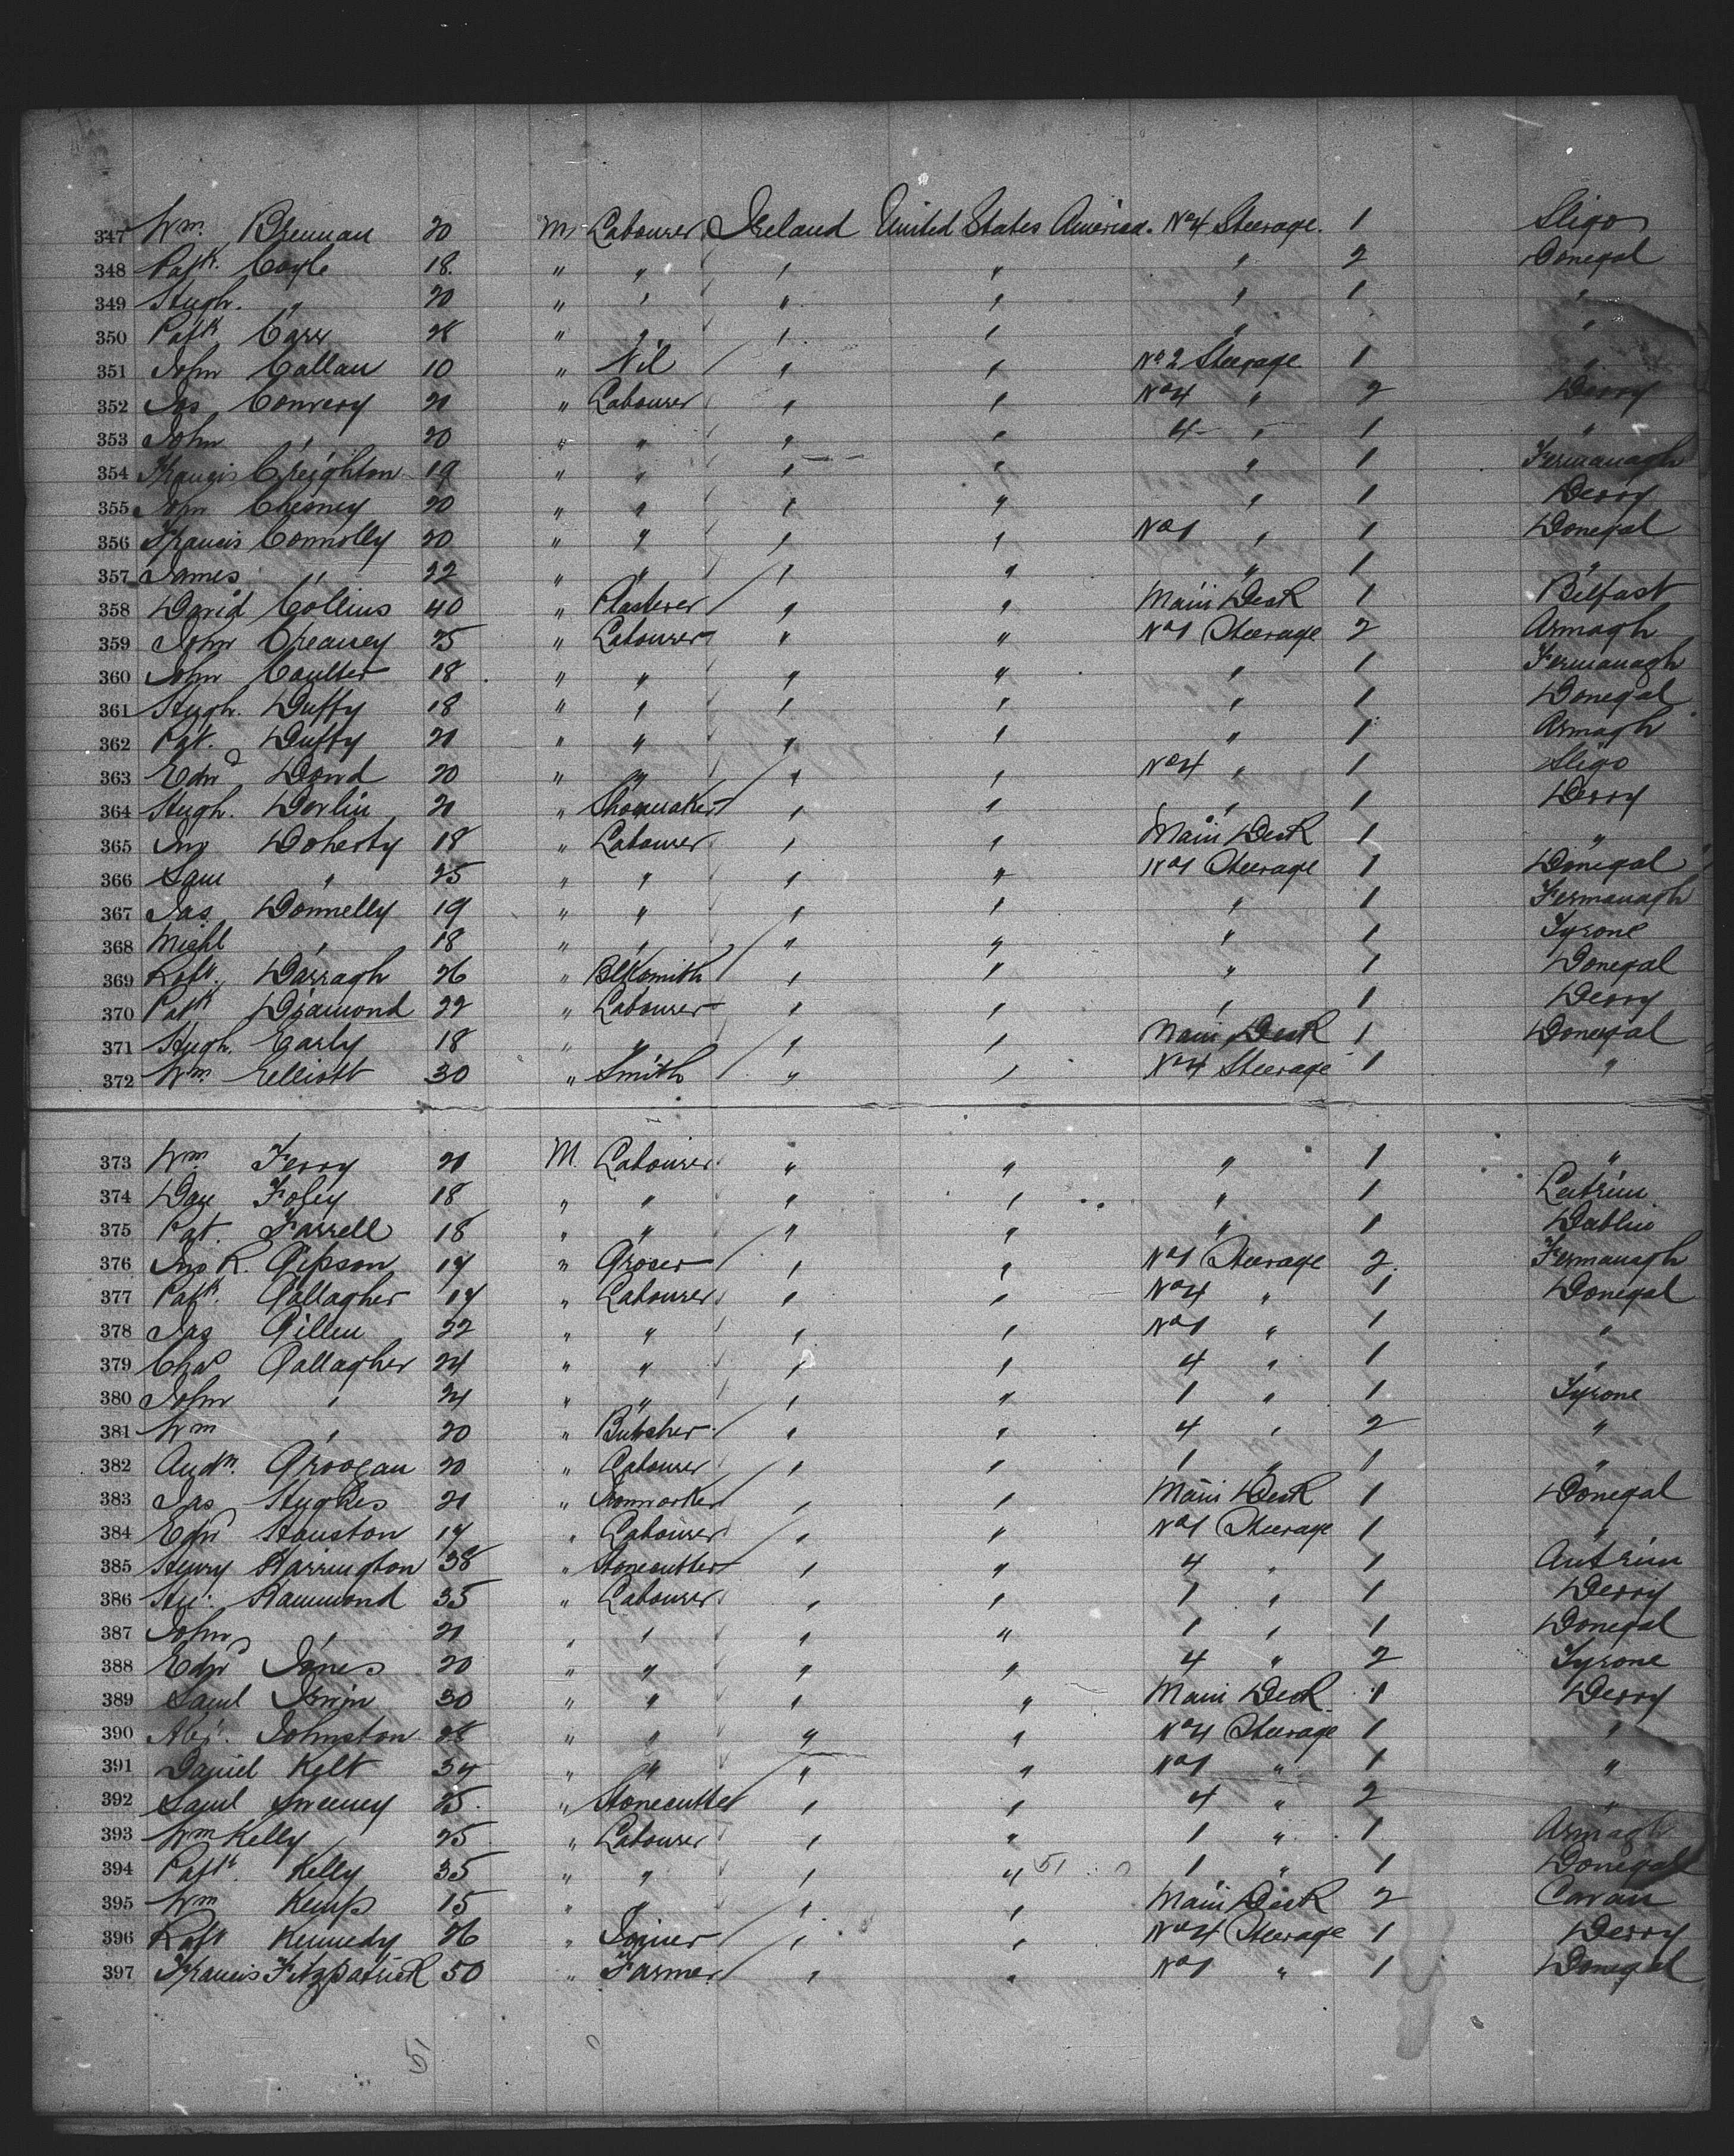 347 Wm. Brennan 20 M Labourer Ireland United States America. No 4 Steerage. 1 Sligo
348 Patk. Coyle 18. " " " " " 2 Donegal
349 Hugh. " 20 " " " " " 1 "
350 Patk Carr 28 " " " " " "
351 John Callan 10 " Nil " " No 2 Steerage 1 "
352 Jas Convery 21 " Labourer " " No 4 " 2 Derry
353 John " 20 " " " " 4 " 1 "
354 Francis Creighton 19 " " " " " 1 Fermanagh
355 John Chesney 20 " " " " " 1 Derry
356 Francis Connolly 20 " " " " No 1 " 1 Donegal
357 James " 22 " " " " " 1 "
358 David Collins 40 " Plasterer " " Main Deck 1 Belfast
359 John Creaney 25 " Labourer " " No 1 Steerage 2 Armagh
360 John Coulter 18 " " " " " 1 Fermanagh
361 Hugh. Duffy 18 " " " " " 1 Donegal
362 Pat. Duffy 21 " " " " " 1 Armagh
363 Edwd Dowd 20 " " " " No 4 " 1 Sligo
364 Hugh. Devlin 21 " Shoemaker " " " 1 Derry
365 Jno Doherty 18 " Labourer " " Main Deck 1 "
366 Sam " 25 " " " " No 1 Steerage 1 Donegal
367 Jas. Donnelly 19 " " " " " 1 Fermanagh
368 Michl " 18 " " " " " 1 Tyrone
369 Robt. Darragh 26 " Blksmith " " " 1 Donegal
370 Patk Diamond 22 " Labourer " " " 1 Derry
371 Hugh. Early 18 " " " " Main Deck 1 Donegal
372 Wm. Elliott 30 " Smith " " No 4 Steerage 1 "
373 Wm. Ferry 21 M. Labourer " " " 1 "
374 Dan Foley 18 " " " " " 1 Leitrim
375 Pat. Farrell 18 " " " " " 1 Dublin
376 Jno R. Gipson 17 " Grocer " " No 1 Steerage 2. Fermanagh
377 Patk. Gallagher 17 " Labourer " " No 4 " 1 Donegal
378 Jas Gillen 22 " " " " No 1 " 1 "
379 Chas Gallagher 24 " " " " 4 " 1 "
380 John " 24 " " " " 1 " 1 Tyrone
381 Wm " 20 " Butcher " " 4 " 2 "
382 Andw. Groogan 20 " Labourer " " 1 " 1 "
383 Jas Hughes 21 " Ironworker " " Main Deck 1 Donegal
384 Edwd Houston 17 " Labourer " " No 1 Steerage 1 "
385 Henry Harrington 38 " Stonecutter " " 4 " 1 Antrim
386 Hammond 35 " Labourer " " 1 " 1 Derry
387 John " 21 " " " " 1 " 1 Donegal
388 Edwd Jones 20 " " " " 4 " 2 Tyrone
389 Saml Irwin 30 " " " " Main Deck 1 Derry
390 Alexr. Johnston 28 " " " " No 4 Steerage 1 "
391 Daniel Kelt " " " " No 1 " 1 "
392 Saml Sweeney 25. " Stonecutter " " 4 " 2 "
393 Wm Kelly 25 " Labourer " " 1 " 1 Armagh
394 Patk. Kelly 35 " " " " 51 1 " 1 Donegal
395 Wm Kemps 15 " " " " Main Deck 2 Cavan
396 Robt Kennedy 26 " Joiner " " No 4 Steerage 1 Derry
397 Francis Fitzpatrick 50 " Farmer " " No 1 " 1 Donegal
51